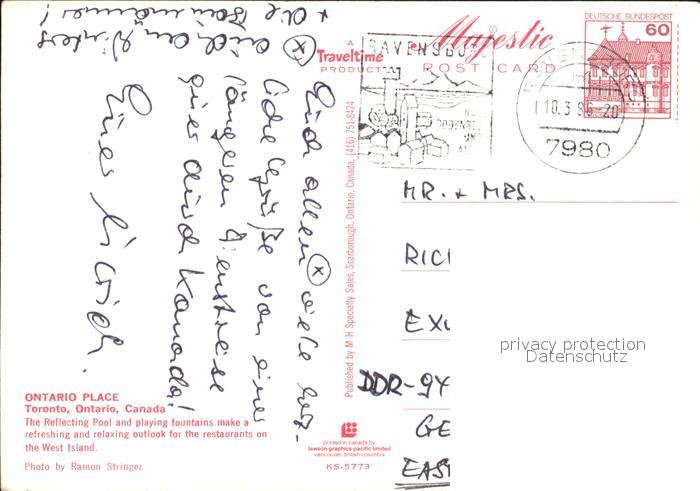 + die
auch an Winters
Euch allen (x) viele herz-
liche Grüße von einer
längeren Dienstreise
quer durch Kanada!
Euer
A
Traveltime
PRODUCT
Majestic
POST CARD
RAVENSBURG
DEUTSCHE BUNDESPOST
60
10.3.86-20
7980
MR. + MRS.
RIC
EX
DDR-94
GE
EAS
privacy protection
Datenschutz
Published by M-H Specialty Sales, Scarborough, Ontario, Canada, (416) 751-8474
ONTARIO PLACE
Toronto, Ontario, Canada
The Reflecting Pool and playing fountains make a
refreshing and relaxing outlook for the restaurants on
the West Island.
Photo by Ramon Stringer
printed in canada by
lawson graphics pacific limited
vancouver, british columbia
KS-5773